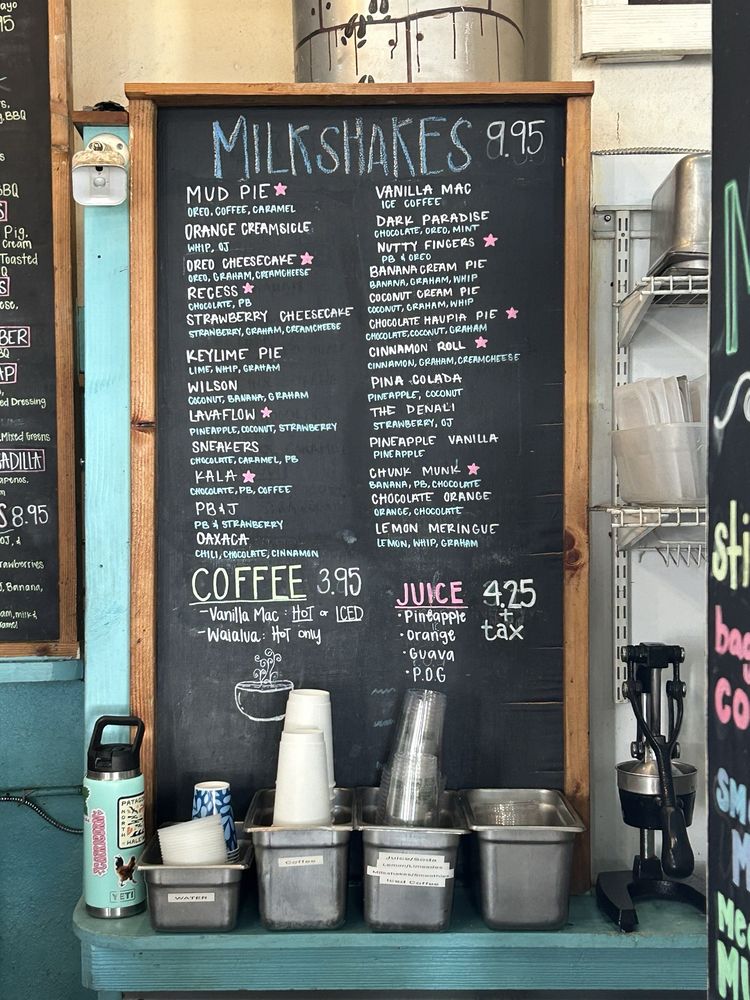 MILKSHAKES 9.95
MUD PIE
OREO, COFFEE, CARAMEL
ORANGE CREAMSICLE
WHIP, OJ
OREO CHEESECAKE
OREO, GRAHAM, CREAMCHEESE
RECESS
CHOCOLATE, PB
STRAWBERRY CHEESECAKE
STRAWBERRY, GRAHAM, CREAMCHEESE
KEYLIME PIE
LIME, WHIP, GRAHAM
WILSON
COCONUT, BANANA, GRAHAM
LAVAFLOW
PINEAPPLE, COCONUT, STRAWBERRY
SNEAKERS
CHOCOLATE, CARAMEL, PB
KALA
CHOCOLATE, PB, COFFEE
PB&J
PB & STRAWBERRY
OAXACA
CHILI, CHOCOLATE, CINNAMON
VANILLA MAC
ICE COFFEE
DARK PARADISE
CHOCOLATE, OREO, MINT
NUTTY FINGERS
PB & OREO
BANANA CREAM PIE
BANANA, GRAHAM, WHIP
COCONUT CREAM PIE
COCONUT, GRAHAM, WHIP
CHOCOLATE HAUPIA PIE
CHOCOLATE, COCONUT, GRAHAM
CINNAMON ROLL
CINNAMON, GRAHAM, CREAMCHEESE
PINA COLADA
PINEAPPLE, COCONUT
THE DENALI
STRAWBERRY, OJ
PINEAPPLE VANILLA
PINEAPPLE
CHUNK MUNK
BANANA, PB, CHOCOLATE
CHOCOLATE ORANGE
ORANGE, CHOCOLATE
LEMON MERINGUE
LEMON, WHIP, GRAHAM
COFFEE 3.95
- Vanilla Mac: HOT or ICED
- Waialua: Hot only
JUICE 4.25
+
tax
• Pineapple
• Orange
• Guava
• P.O.G
WATER
Coffee
Juice/Soda
Lemon/Limeades
Milkshakes/Smoothies
Iced Coffee
YETI
BBQ
Pig,
Cream
Toasted
BER
AP
ed Dressing
Mixed Greens
ADILLA
8.95
trawberries
Banana,